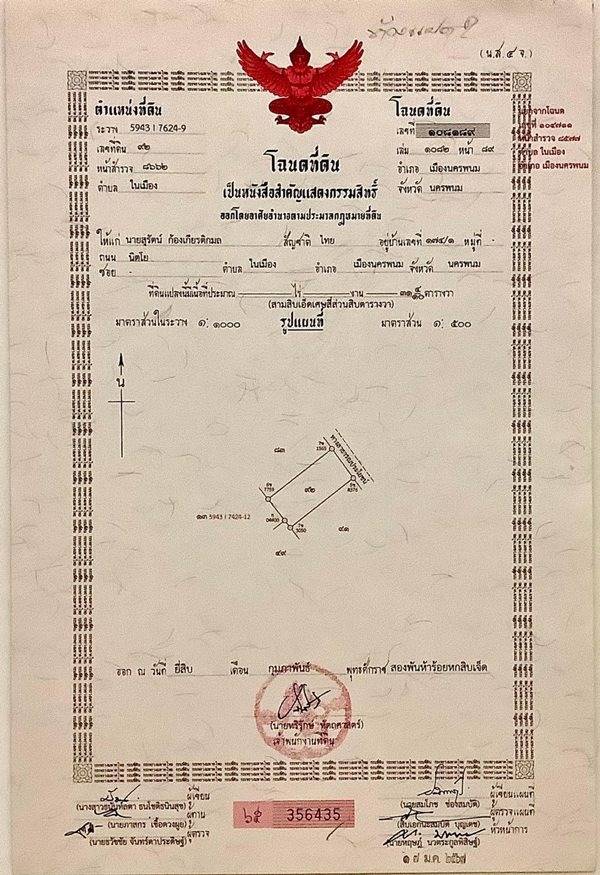 (น.ส.๔ จ.)
ตำแหน่งที่ดิน
ระวาง 5943 I 7624-9
เลขที่ดิน ๙๒
หน้าสำรวจ ๘๖๖๒
ตำบล ในเมือง
โฉนดที่ดิน
เลขที่ ๑๐๘๑๘๙
เล่ม ๑๐๘๒ หน้า ๘๙
อำเภอ เมืองนครพนม
จังหวัด นครพนม
จากโฉนด
เลขที่ ๑๐๔๗๑๑
หน้าสำรวจ ๘๕๗๗
ในเมือง
เมืองนครพนม
โฉนดที่ดิน
เป็นหนังสือสำคัญแสดงกรรมสิทธิ์
ออกโดยอาศัยอำนาจตามประมวลกฎหมายที่ดิน
ให้แก่ นายสุรัตน์ ก้องเกียรติกมล สัญชาติ ไทย อยู่บ้านเลขที่ ๑๗๔/๑ หมู่ที่ -
ถนน นิตโย
ซอย - ตำบล ในเมือง อำเภอ เมืองนครพนม จังหวัด นครพนม
ที่ดินแปลงนี้มีเนื้อที่ประมาณ ไร่ งาน ๓๑ ๔/๑๐ ตารางวา
(สามสิบเอ็ดเศษสี่ส่วนสิบตารางวา)
มาตราส่วนในระวาง ๑: ๑๐๐๐ รูปแผนที่ มาตราส่วน ๑: ๕๐๐
น
๘๓
ทางสาธารณประโยชน์
1565
๙๒
8376
7759
๑๓ 5943 I 7424-12
3050
๙๑
๔๙
ออก ณ วันที่ ยี่สิบ เดือน กุมภาพันธ์ พุทธศักราช สองพันห้าร้อยหกสิบเจ็ด
เจ้าพนักงานที่ดิน
ผู้เขียน
ผู้ทาน
(นายภาสกร เชื้อดวงผุย)
ผู้ตรวจ
(นายธวัชชัย จันทร์ดาประดิษฐ์)
356435
ผู้เขียนแผนที่
(นายสมโภช ช่องสมบัติ)
ผู้ตรวจแผนที่
หัวหน้าการ
๑๗ ม.ค. ๒๕๖๗